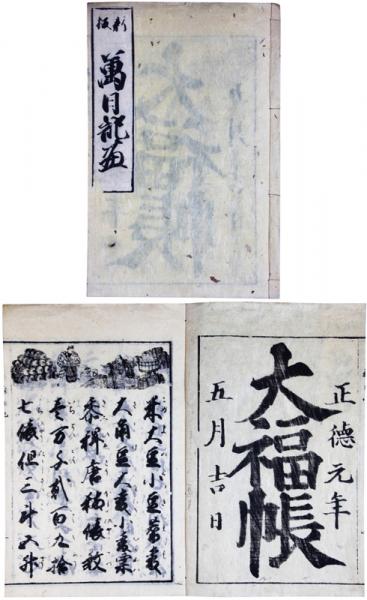 新板
正德元年
大福帳
五月吉日
米大豆小豆蕎麦
大角豆大麦小麦粟
黍稗唐秫俵数
壱万千弐百九拾
七俵但三斗五升